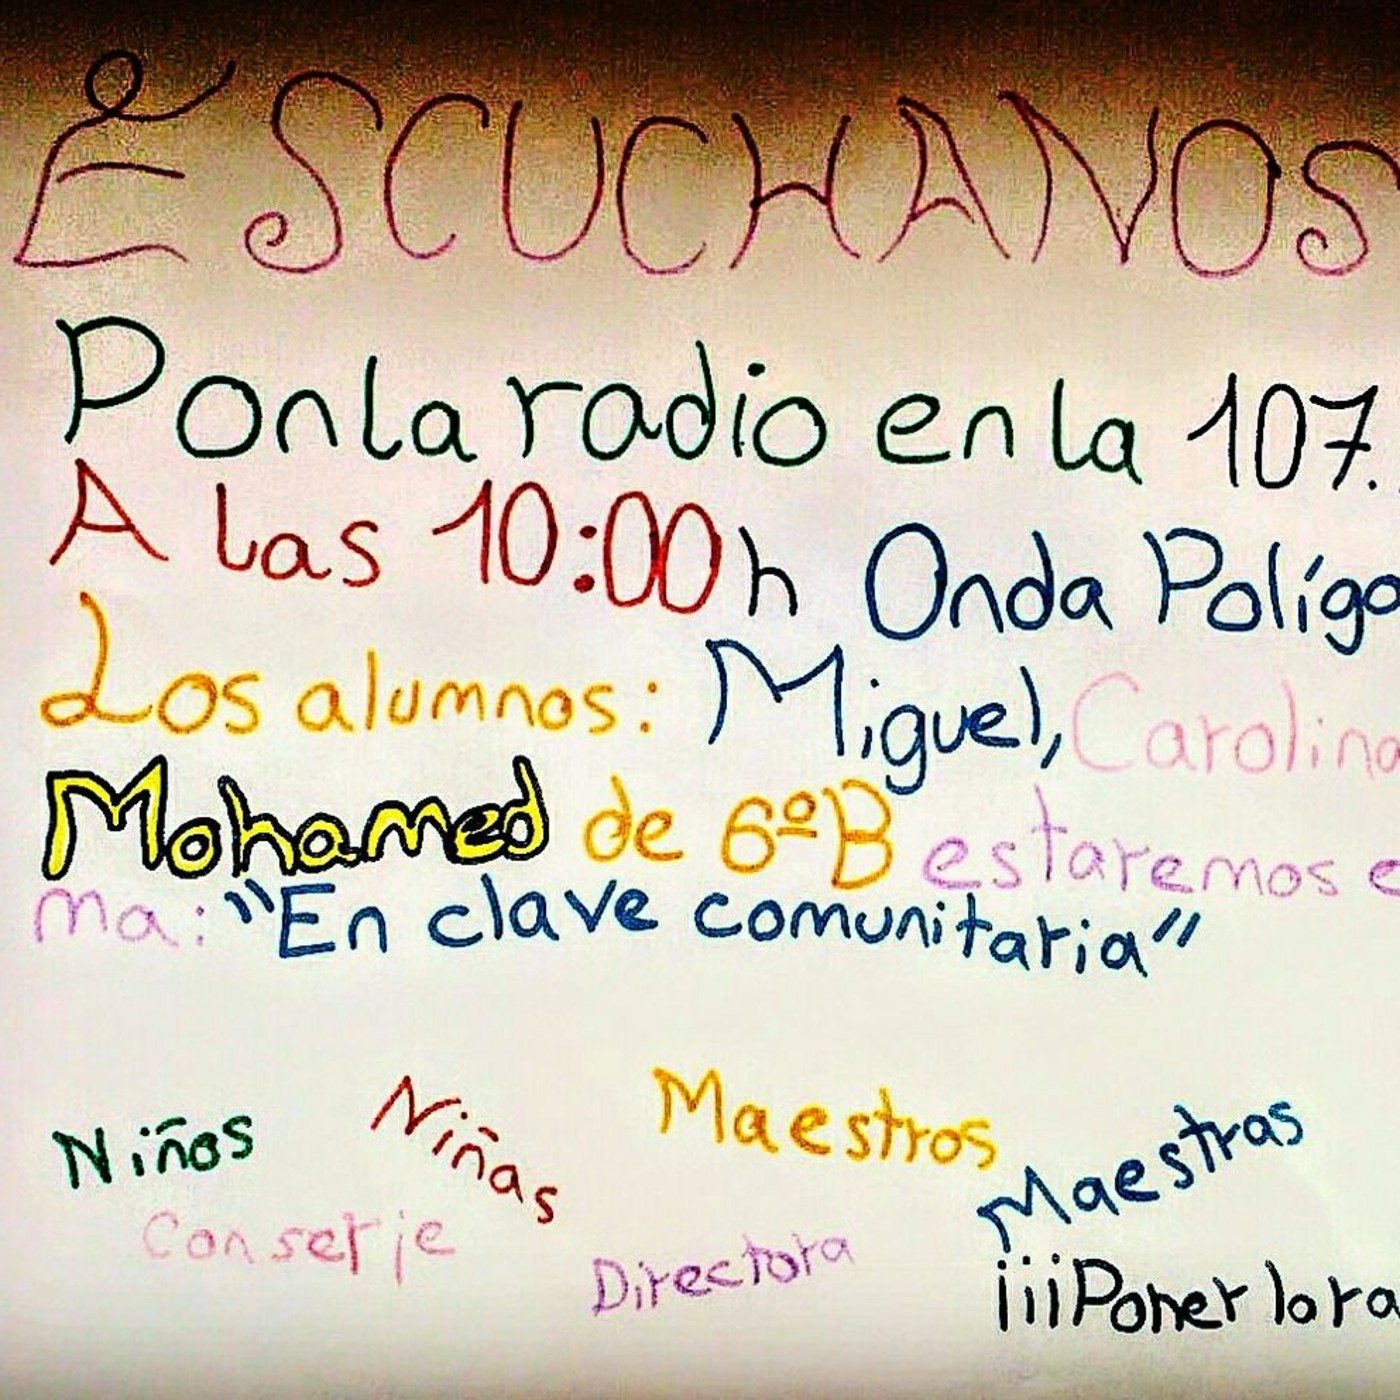 ESCUCHANOS
Pon la radio en la 107.
A las 10:00 h Onda Polígo
Los alumnos: Miguel, Carolina
Mohamed de 6ºB estaremos e
ma: "En clave comunitaria"
Niños Niñas Maestros Maestras
Conserje Directora
¡¡¡Poner la ra